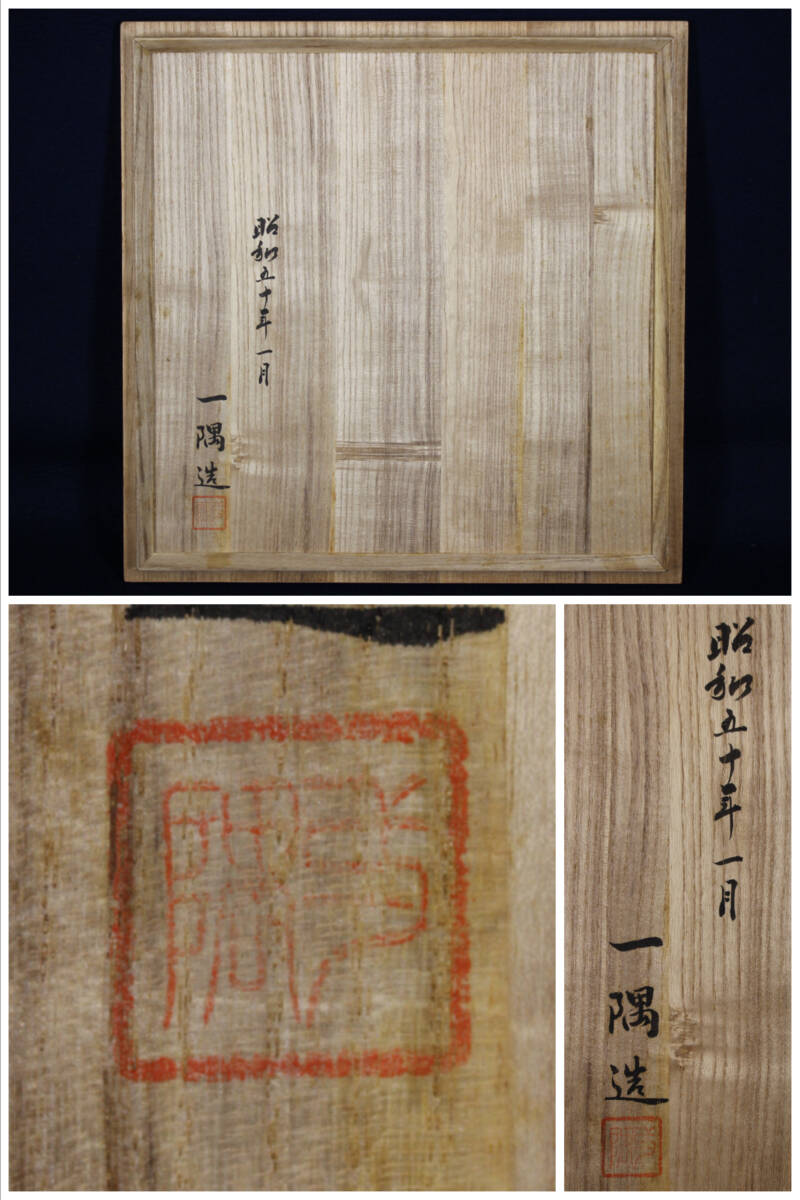 昭和五十年一月
一隅造
昭和五十年一月
一隅造